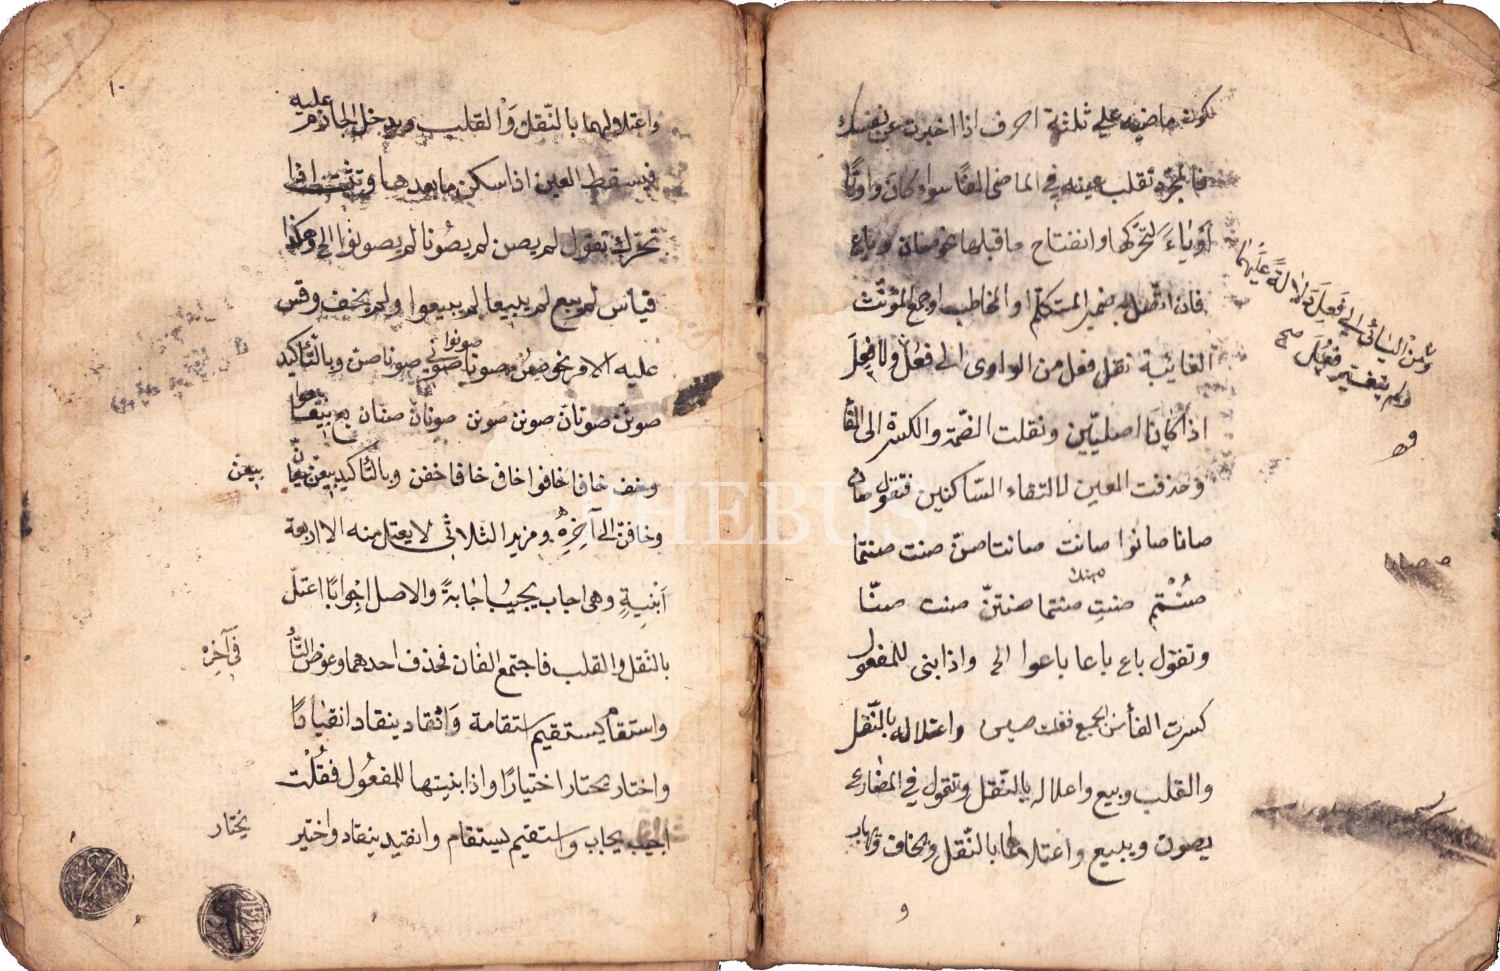 يكون ماضيه على ثلثة احرف اذا اخبرت عن نفسك
فالمجرد تقلب عينه في الماضى الفًا سواء كان واوًا
اوياءً لتحركها وانفتاح ماقبلها نحو صان وباع
فاذا اتصل به ضمير المتكلم او المخاطب اوجمع المؤنث
الغائبة نقل فعل من الواوى الى فعُل ولا فعِل
ومن اليائى الى فَعِلَ دلالةً عليهما
ولم يتغير فعُل صح
اذا كانا اصليّين ونقلت الضمّة والكسرة الى الفا
وحذفت العين لالتقاء السّاكنين فتقول صان
صانا صانوا صانت صانتا صنّ صنت صنتما
صُنْتُم صنتِ صنتما صنتنّ صنت صنّا
وتقول باع باعا باعوا الى واذا بنى للمفعول
كسرت الفأ من الجميع فقلت صين واعتلاله بالنّقل
والقلب وبيع واعلاله بالنّقل وتقول في المضارع
يصون ويبيع واعتلالهما بالنّقل ويخاف ويهاب
و
١٠
واعتلالهما بالنّقل وَالقلب ويدخل الجازم عليه
فيسقط العين اذا سكن مابعدها وتثبت اذا
تحرك تقول لم يصن لم يصُونا لم يصونوا الى وهكذا
قياس لم يبع لم يبيعا لم يبيعوا ولم يخف وقس
عليه الامر نحو صُن صونا صونوا صونى صونا صنّ وبالتّأكيد
صوننّ صونانّ صوننّ صوننّ صونانّ صنان بع بيعا بيعوا
وخف خافا خافوا خاف خافا خفن وبالتّأكيد بيعنّ بيعانّ
بيعنّ
وخافنّ الى آخِرِهِ ومزيد الثلاثى لا يعتل منه الا اربعة
اَبْنِيةٍ وهى اجاب يجيبُ اجَابةً والاصل اجوابًا اعتلّ
بالنّقل والقلب فاجتمع الفان فحذف احدهما وعوض التّأُ
فى آخِرِهِ
واستقام يستقيم استقامة وَانْقاد ينقاد انقيادًا
واختار يختار اختيارًا واذا بنيتها للمفعُول فقُلْت
اجيب يجاب واستقيم يستقام وانقيد ينقاد واختير
يختار
PHEBUS